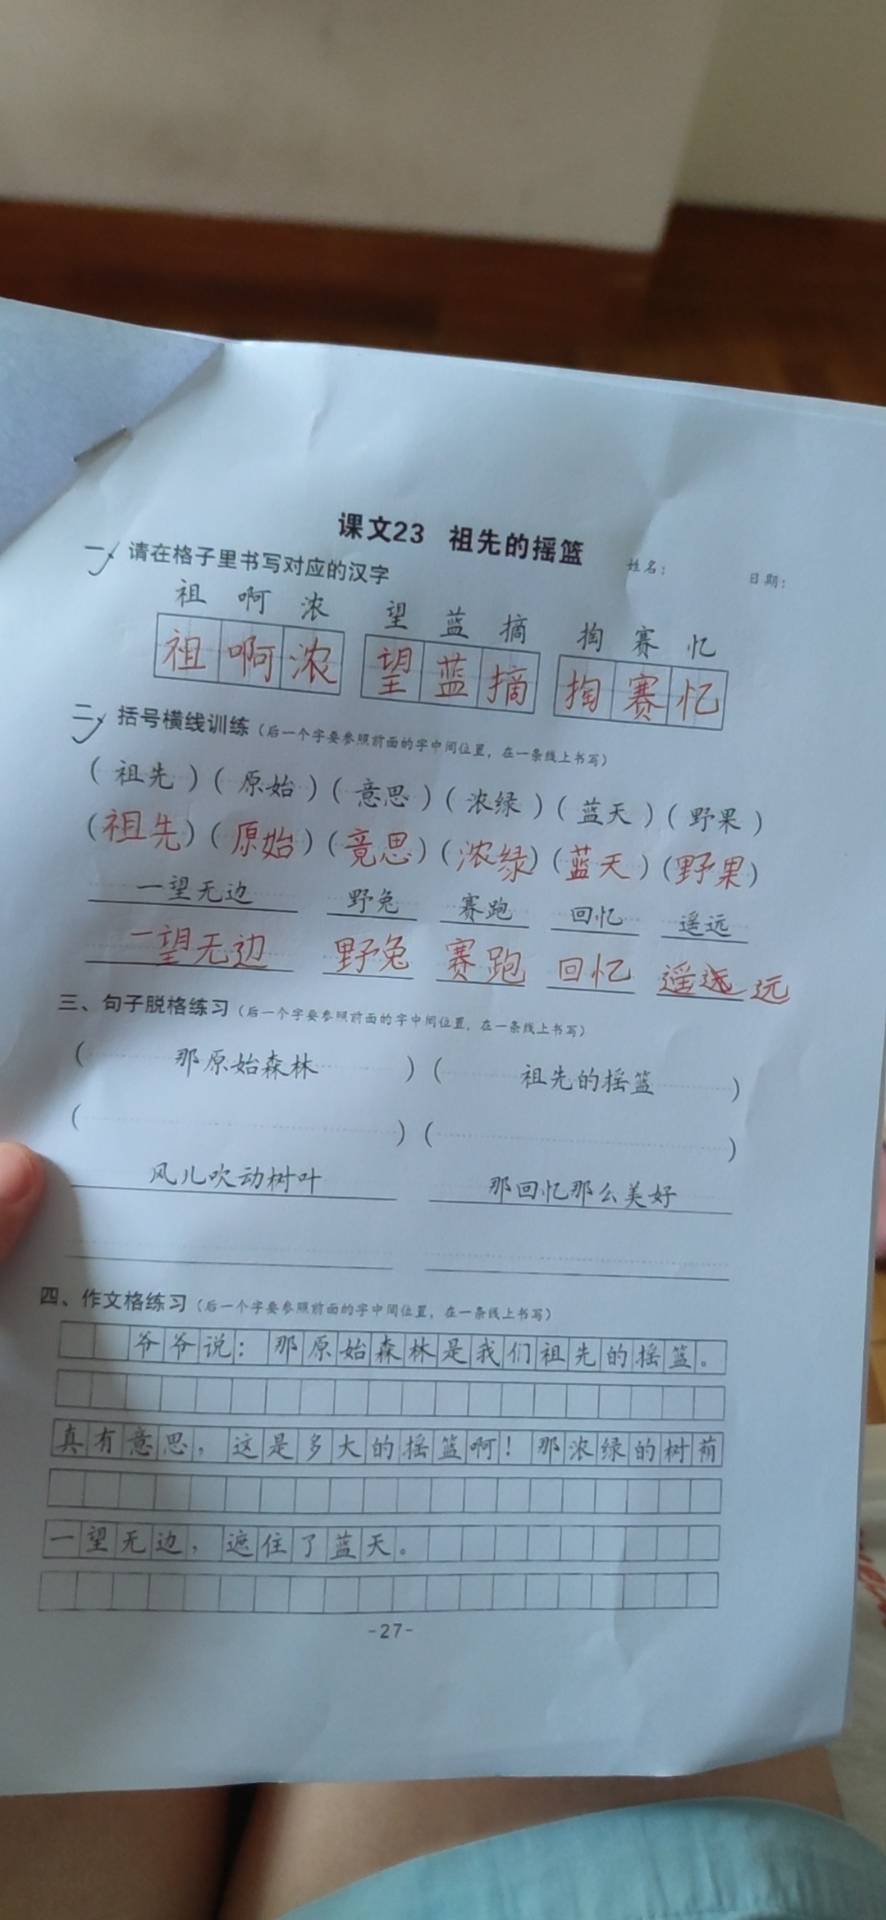 课文23 祖先的摇篮
姓名： 日期：
一、请在格子里书写对应的汉字
祖 啊 浓 望 蓝 摘 掏 赛 忆
祖 啊 浓 望 蓝 摘 掏 赛 忆
二、括号横线训练（后一个字要参照前面的字中间位置，在一条线上书写）
（祖先）（原始）（意思）（浓绿）（蓝天）（野果）
（祖先）（原始）（意思）（浓绿）（蓝天）（野果）
一望无边 野兔 赛跑 回忆 遥远
一望无边 野兔 赛跑 回忆 遥远
三、句子脱格练习（后一个字要参照前面的字中间位置，在一条线上书写）
（那原始森林）（祖先的摇篮）
（ ）（ ）
风儿吹动树叶 那回忆那么美好
四、作文格练习（后一个字要参照前面的字中间位置，在一条线上书写）
爷爷说：那原始森林是我们祖先的摇篮。
真有意思，这是多大的摇篮啊！那浓绿的树荫
一望无边，遮住了蓝天。
-27-